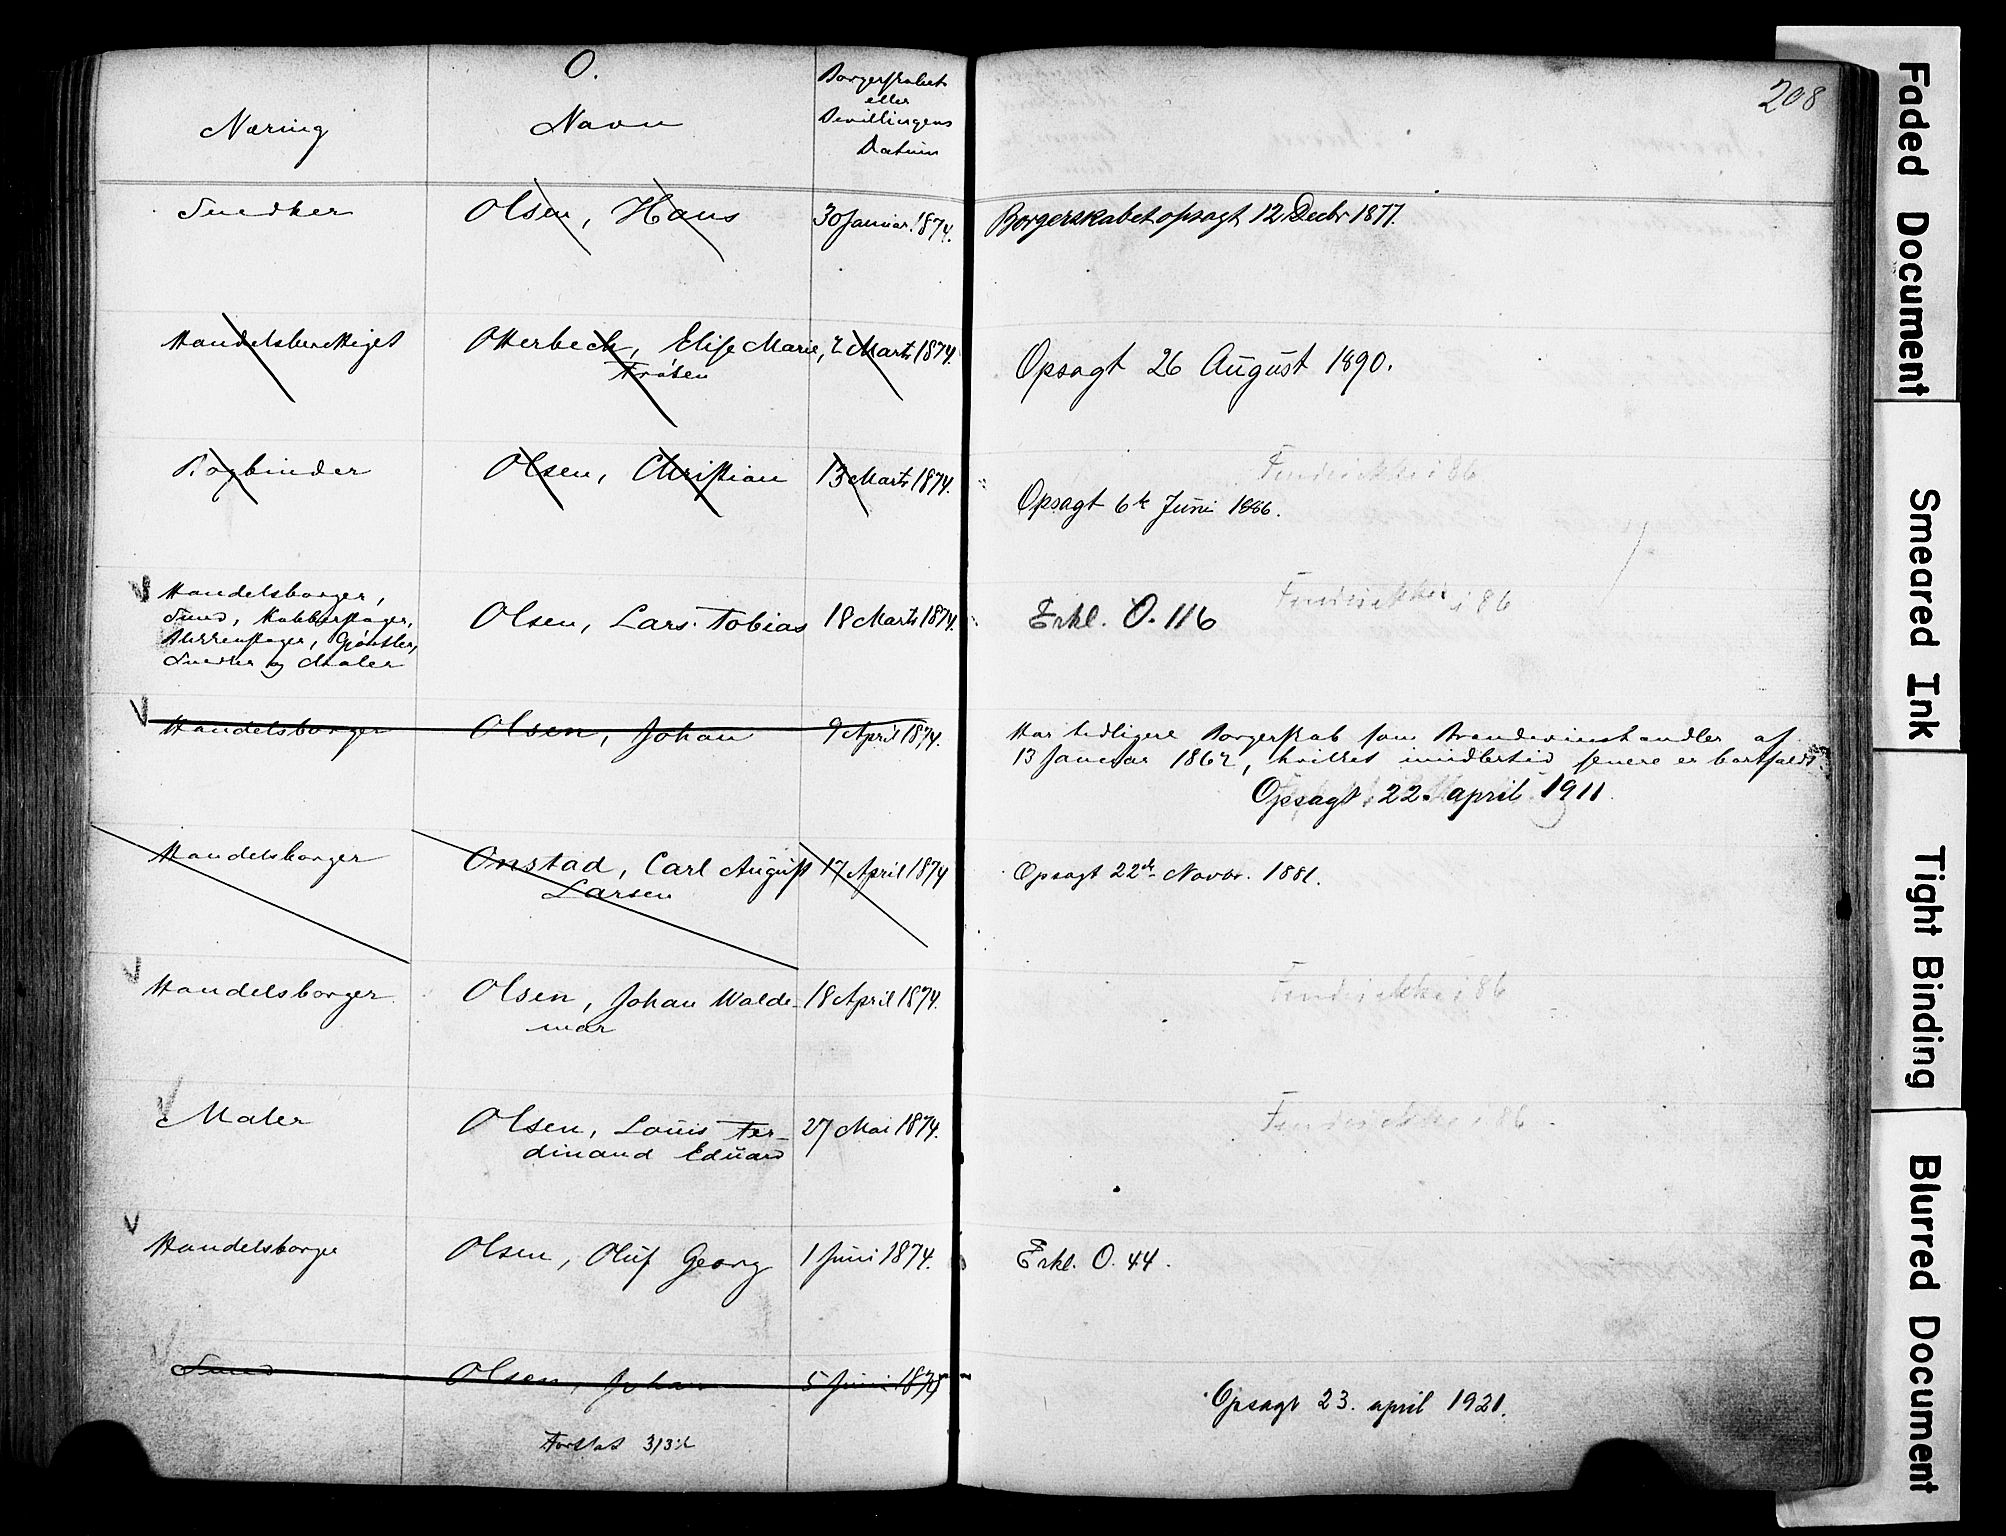 O.
208
Næring
Navn
Borgerskabet
eller
Bevillingens
Datum
Snedker
Olsen, Hans
30 Januar 1874.
Borgerskabet opsagt 12 Decbr 1877.
Handelsberettiget
Otterbeck, Elise Marie,
Frøken
2 Marts 1874.
Opsagt 26 August 1890.
Bogbinder
Olsen, Christian
13 Marts 1874.
Findes ikke i 86
Opsagt 6te Juni 1886.
Handelsborger,
Smed, Kobberslager,
Blikkenslager, Gjørtler,
Snedker og Maler
Olsen, Lars Tobias
18 Marts 1874.
Erkl. O. 116
Findes ikke i 86
Handelsborger
Olsen, Johan
9 April 1874.
Har tidligere Borgerskab som Brændevinshandler af
13 Januar 1862, hvilket imidlertid senere er bortfaldt.
Opsagt 22. april 1911.
Handelsborger
Onstad, Carl August
Larsen
17 April 1874
Opsagt 22de Novbr. 1881.
Handelsborger
Olsen, Johan Walde-
mar
18 April 1874.
Findes ikke i 86
Maler
Olsen, Louis Fer-
dinand Eduard
27 Mai 1874.
Findes ikke i 86
Handelsborger
Olsen, Oluf Georg
1 Juni 1874.
Erkl. O. 44.
Smed
Olsen, Johan
5 Juni 1874
Opsagt 23. april 1921.
Faded Document
Smeared Ink
Tight Binding
Blurred Document